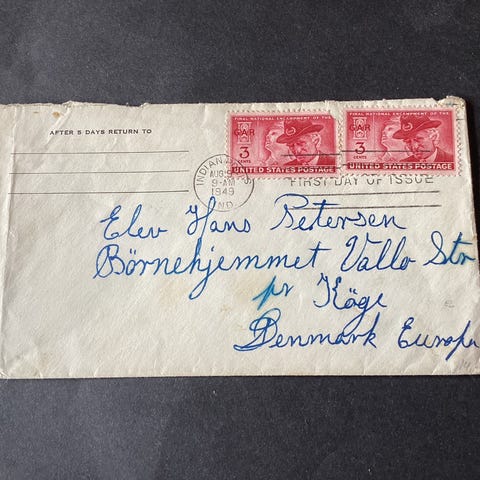 AFTER 5 DAYS RETURN TO
FINAL NATIONAL ENCAMPMENT OF THE
GAR
3
CENTS
UNITED STATES POSTAGE
FINAL NATIONAL ENCAMPMENT OF THE
GAR
3
CENTS
UNITED STATES POSTAGE
AUG
9-AM
1949
IND.
FIRST DAY OF ISSUE
Elev Hans Petersen
Börnehjemmet Vallo Str
pr Köge
Denmark Europa